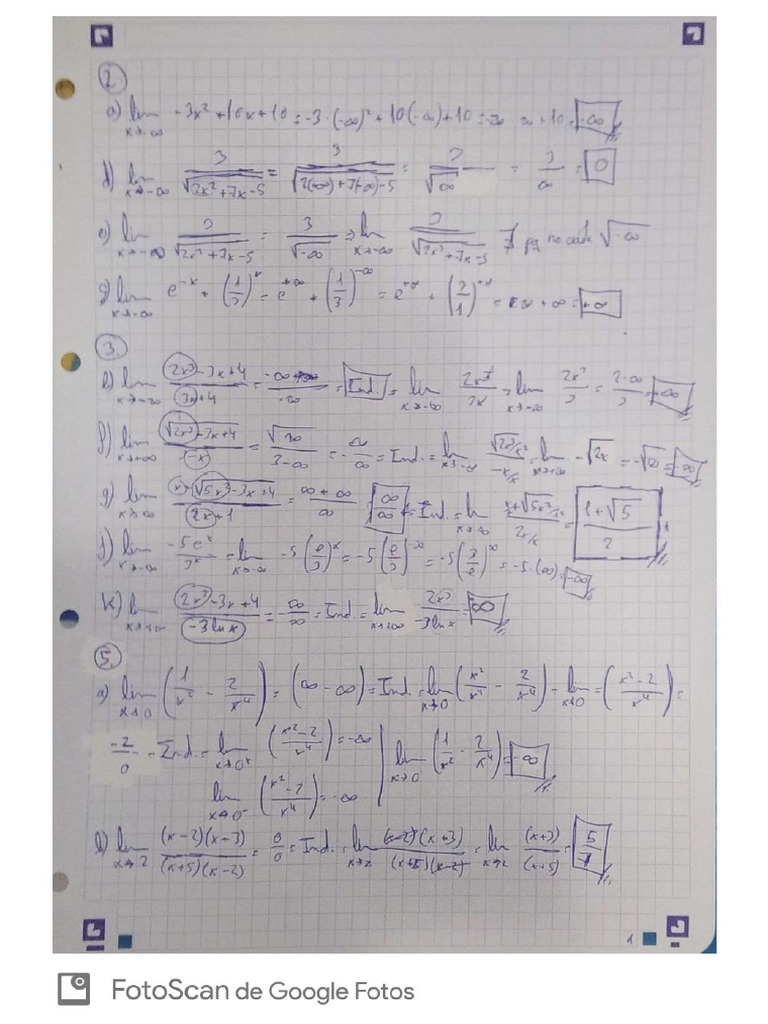 2.
a) lim x→-∞ -3x² + 10x + 10 = -3·(-∞)² + 10(-∞) + 10 = -∞ -∞ + 10 = -∞
d) lim x→-∞ 3/√(2x²+7x-5) = 3/√(2(∞)+7(-∞)-5) = 3/√∞ = 3/∞ = 0
e) lim x→-∞ 3/√(2x³+7x-5) = 3/√-∞ ⇒ lim x→-∞ 3/√(2x³+7x-5) ∄ pq no existe √-∞
g) lim x→-∞ e^-x + (1/3)^x = e^+∞ + (1/3)^-∞ = e^+∞ + (3/1)^+∞ = ∞ + ∞ = +∞
3.
lim x→-∞ (2x³-3x+4)/(3x+4) = -∞/-∞ = Ind = lim x→-∞ 2x³/3x = lim x→-∞ 2x²/3 = 2·∞/3 = +∞
f) lim x→+∞ √(2x³-3x+4)/(3-x) = √∞/3-∞ = -∞/∞ = Ind. = lim x→-∞ √(2x³/x²)/(-x/x) = lim x→+∞ -√2x = -√∞ = -∞
g) lim x→∞ (x+√(5x²-3x+4))/(2x+1) = ∞+∞/∞ = ∞/∞ = Ind. = lim x→∞ (x+√(5x²/x²))/(2x/x) = (1+√5)/2
j) lim x→-∞ -5e^x/3^x = lim x→-∞ -5(e/3)^x = -5(e/3)^-∞ = -5(3/e)^∞ = -5·(∞) = -∞
k) lim x→+∞ (2x³-3x+4)/(-3lnx) = -∞/∞ = Ind. = lim x→+∞ 2x³/-3lnx = ∞
5.
a) lim x→0 (1/x² - 2/x⁴) = (∞ - ∞) = Ind. = lim x→0 (x²/x⁴ - 2/x⁴) = lim x→0 = (x²-2/x⁴) =
-2/0 = Ind. = lim x→0⁺ (x²-2/x⁴) = -∞ | lim x→0 (1/x² - 2/x⁴) = -∞
lim x→0⁻ (x²-2/x⁴) = -∞
b) lim x→2 (x-2)(x+3)/(x+5)(x-2) = 0/0 = Ind. = lim x→2 (x-2)(x+3)/(x+5)(x-2) = lim x→2 (x+3)/(x+5) = 5/7
1
FotoScan de Google Fotos